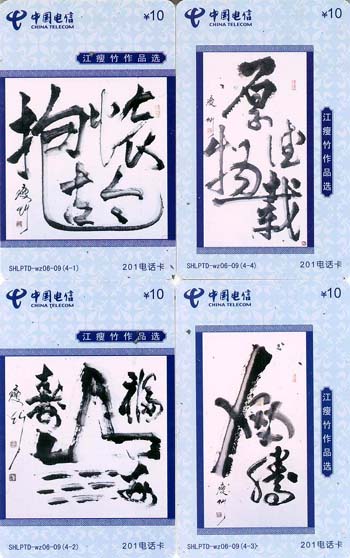 中国电信
CHINA TELECOM
¥10
江瘦竹作品选
怀抱古今
瘦竹
SHLPTD-wz06-09(4-1)
201电话卡
中国电信
CHINA TELECOM
¥10
江瘦竹作品选
厚德载物
瘦竹
SHLPTD-wz06-09(4-4)
201电话卡
中国电信
CHINA TELECOM
¥10
江瘦竹作品选
瘦竹
SHLPTD-wz06-09(4-2)
201电话卡
中国电信
CHINA TELECOM
¥10
江瘦竹作品选
瘦竹
SHLPTD-wz06-09(4-3)
201电话卡